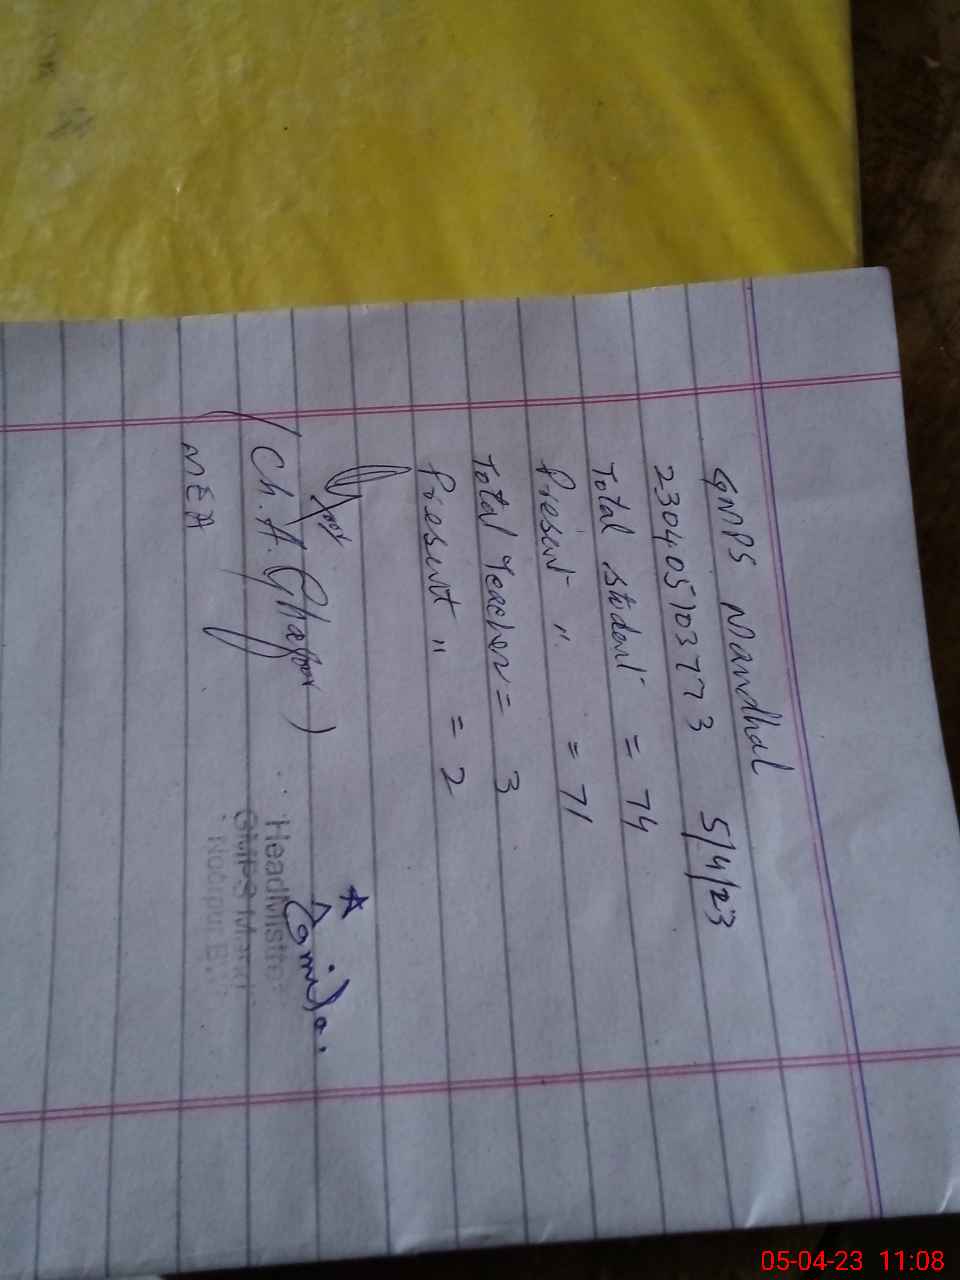 GMPS Mandhal
23040510377 3 5/4/23
Total student = 74
Present " = 71
Total Teacher = 3
Present " = 2
(Ch. A. Ghafoor)
MEA
HeadMistre
GMPS Mand
05-04-23 11:08